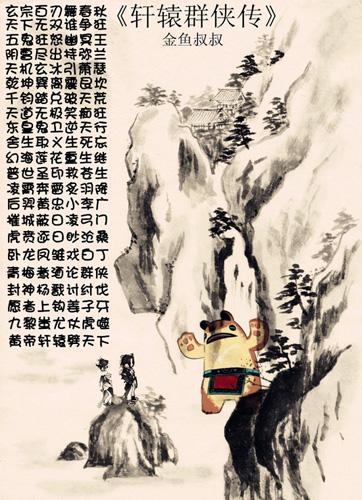 《轩辕群侠传》
金鱼叔叔
玄宗百刃舞春秋
天下无双谁争狂
五鬼狂怒幽冥王
阴曹尽出持弥兰
天机玄冰引萧瑟
乾坤穷离震艮坎
千钧踏兑破天荒
天道无极笑痴狂
东皇鬼卫逆天行
舍生取义生死忘
幻海莲花重生继
普世圣印救苍生
后羿黄忠小李广
摧城蔽日凌弓门
虎贲逐日眇沧桑
卧龙凤雏戏白丁
青梅煮酒论群侠
封神杨戬讨纣伐
愿者上钩姜子牙
九黎蚩尤仗虎噬
黄帝轩辕劈天下